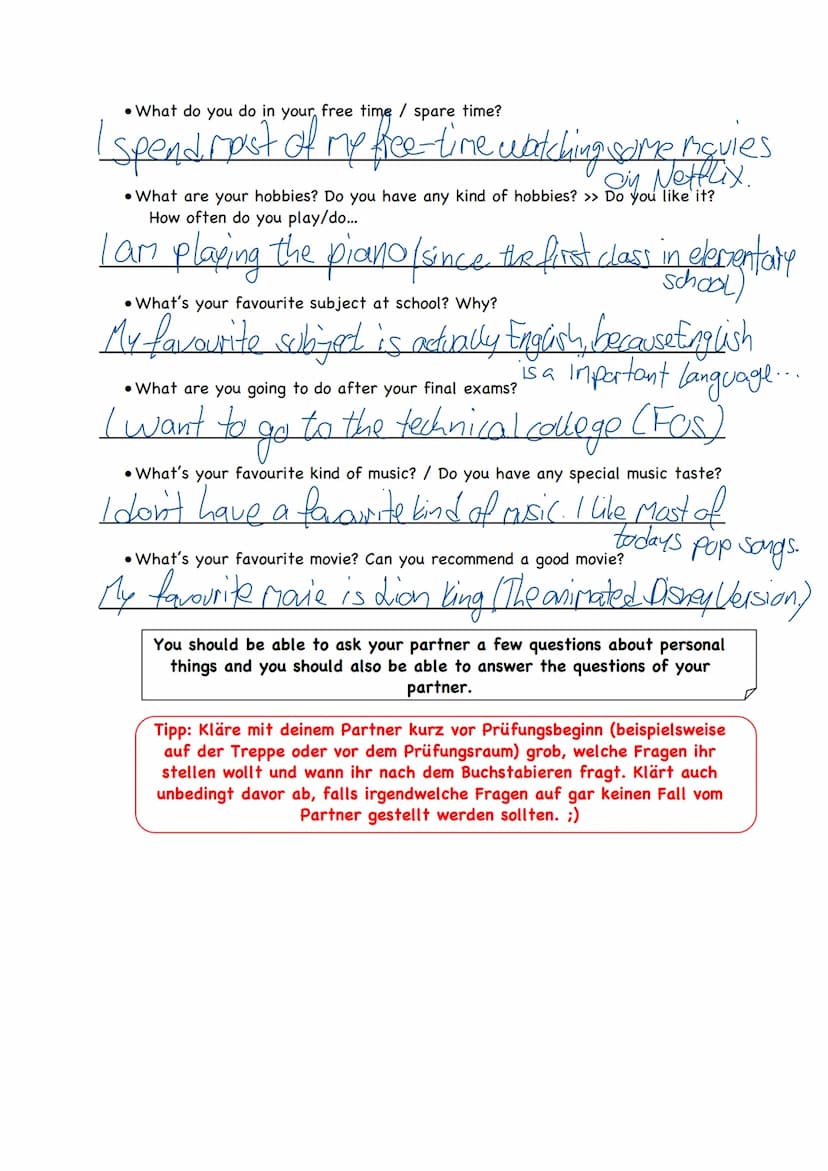 • What do you do in your free time / spare time?
I spend most of my free-time watching some movies
on Netflix.
• What are your hobbies? Do you have any kind of hobbies? >> Do you like it?
How often do you play/do…
I am playing the piano (since the first class in elementary
school)
• What's your favourite subject at school? Why?
My favourite subject is actually English, because English
is a important language...
• What are you going to do after your final exams?
I want to go to the technical college (FOS)
• What's your favourite kind of music? / Do you have any special music taste?
I don't have a favourite kind of music. I like most of
todays pop songs.
• What's your favourite movie? Can you recommend a good movie?
My favourite movie is Lion King (The animated Disney Version)
You should be able to ask your partner a few questions about personal
things and you should also be able to answer the questions of your
partner.
Tipp: Kläre mit deinem Partner kurz vor Prüfungsbeginn (beispielsweise
auf der Treppe oder vor dem Prüfungsraum) grob, welche Fragen ihr
stellen wollt und wann ihr nach dem Buchstabieren fragt. Klärt auch
unbedingt davor ab, falls irgendwelche Fragen auf gar keinen Fall vom
Partner gestellt werden sollten. ;)